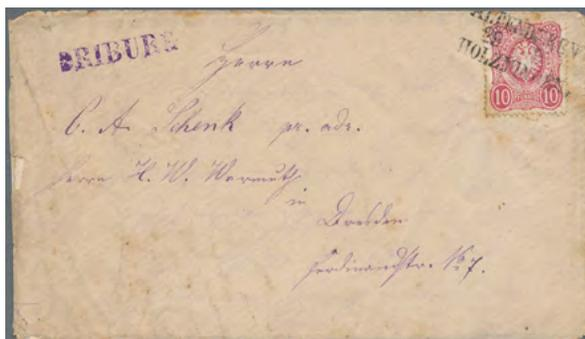 DRIBURG
ALTENBEKEN
HOLZMINDEN
10 10
Herrn
C. A. Schenk pr. adr.
Herrn H. W. Warmuth
in
Dresden
Ferdinandstr. No 7.